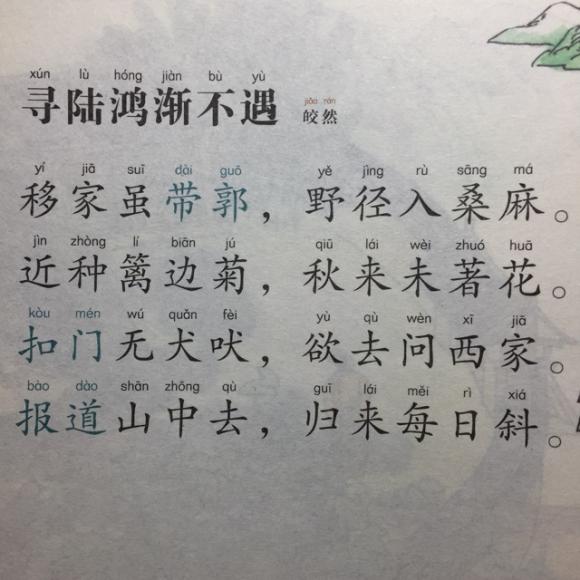 xún lù hóng jiàn bù yù
寻陆鸿渐不遇
jiǎo rán
皎然
yí jiā suī dài guō yě jìng rù sāng má
移家虽带郭，野径入桑麻。
jìn zhòng lí biān jú qiū lái wèi zhuó huā
近种篱边菊，秋来未著花。
kòu mén wú quǎn fèi yù qù wèn xī jiā
扣门无犬吠，欲去问西家。
bào dào shān zhōng qù guī lái měi rì xiá
报道山中去，归来每日斜。